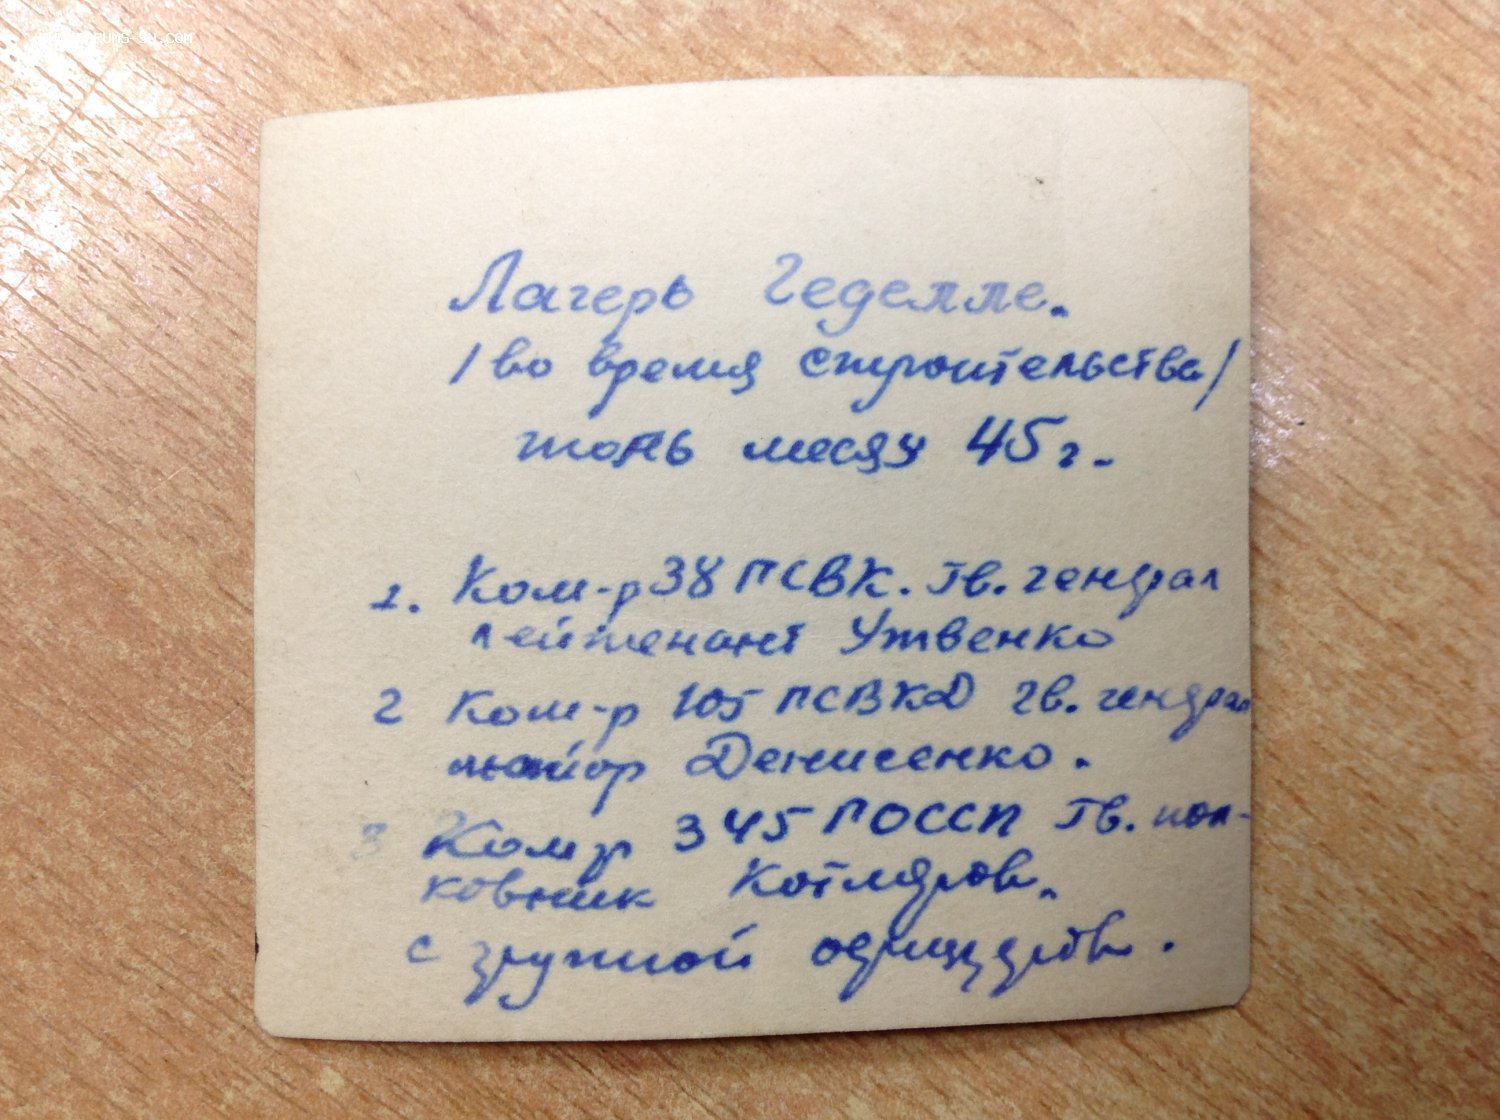 Лагерь Геделле.
/во время строительства/
июнь месяц 45г.
1. Ком-р 38 ПСВК. Гв. генерал
лейтенант Утвенко
2 Ком-р 105 ПСВКД гв. генерал
майор Денисенко.
3 Ком-р 345 ПОССП Гв. пол-
ковник Котляров.
с группой офицеров.